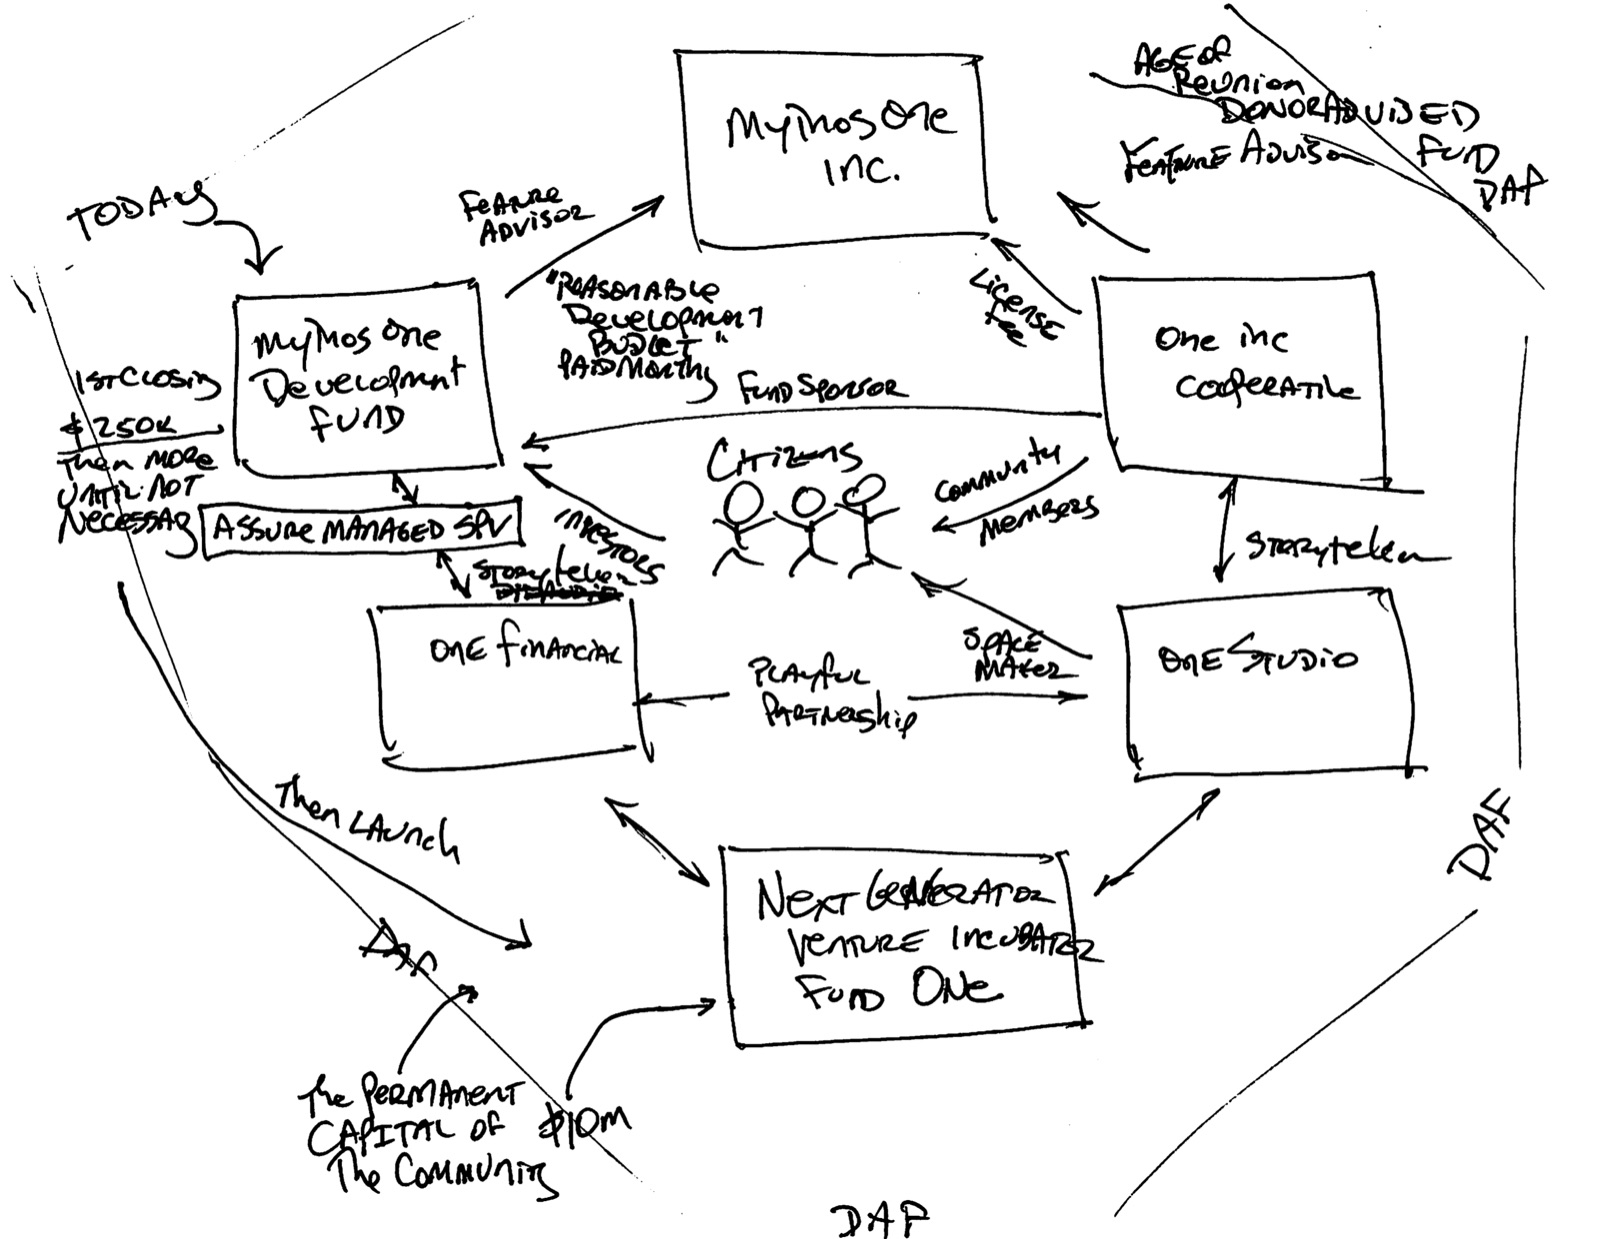 AGE OF
Reunion
DONOR ADVISED
FUND
DAF
FEATURE ADVISOR
MyThos One
Inc.
TODAY
FEATURE
ADVISOR
"REASONABLE
Development
BUDGET"
PAID Monthly
License
Fee
MyThos One
Development
FUND
One inc
COOPERATIVE
1ST Closing
$250K
Then MORE
UNTIL NOT
Necessary
Fund Sponsor
Citizens
Community
Members
ASSURE MANAGED SPV
INVESTORS
STORYteller
STORYteller
ONE FINANCIAL
PLAYful
PARTNERShip
SPACE
MAKER
ONE STUDIO
Then LAunch
DAF
NEXT GENERATOR
VENTURE INCUBATOR
FUND ONE
DAF
The PERMANENT
CAPITAL OF
The Community
$10m
DAF